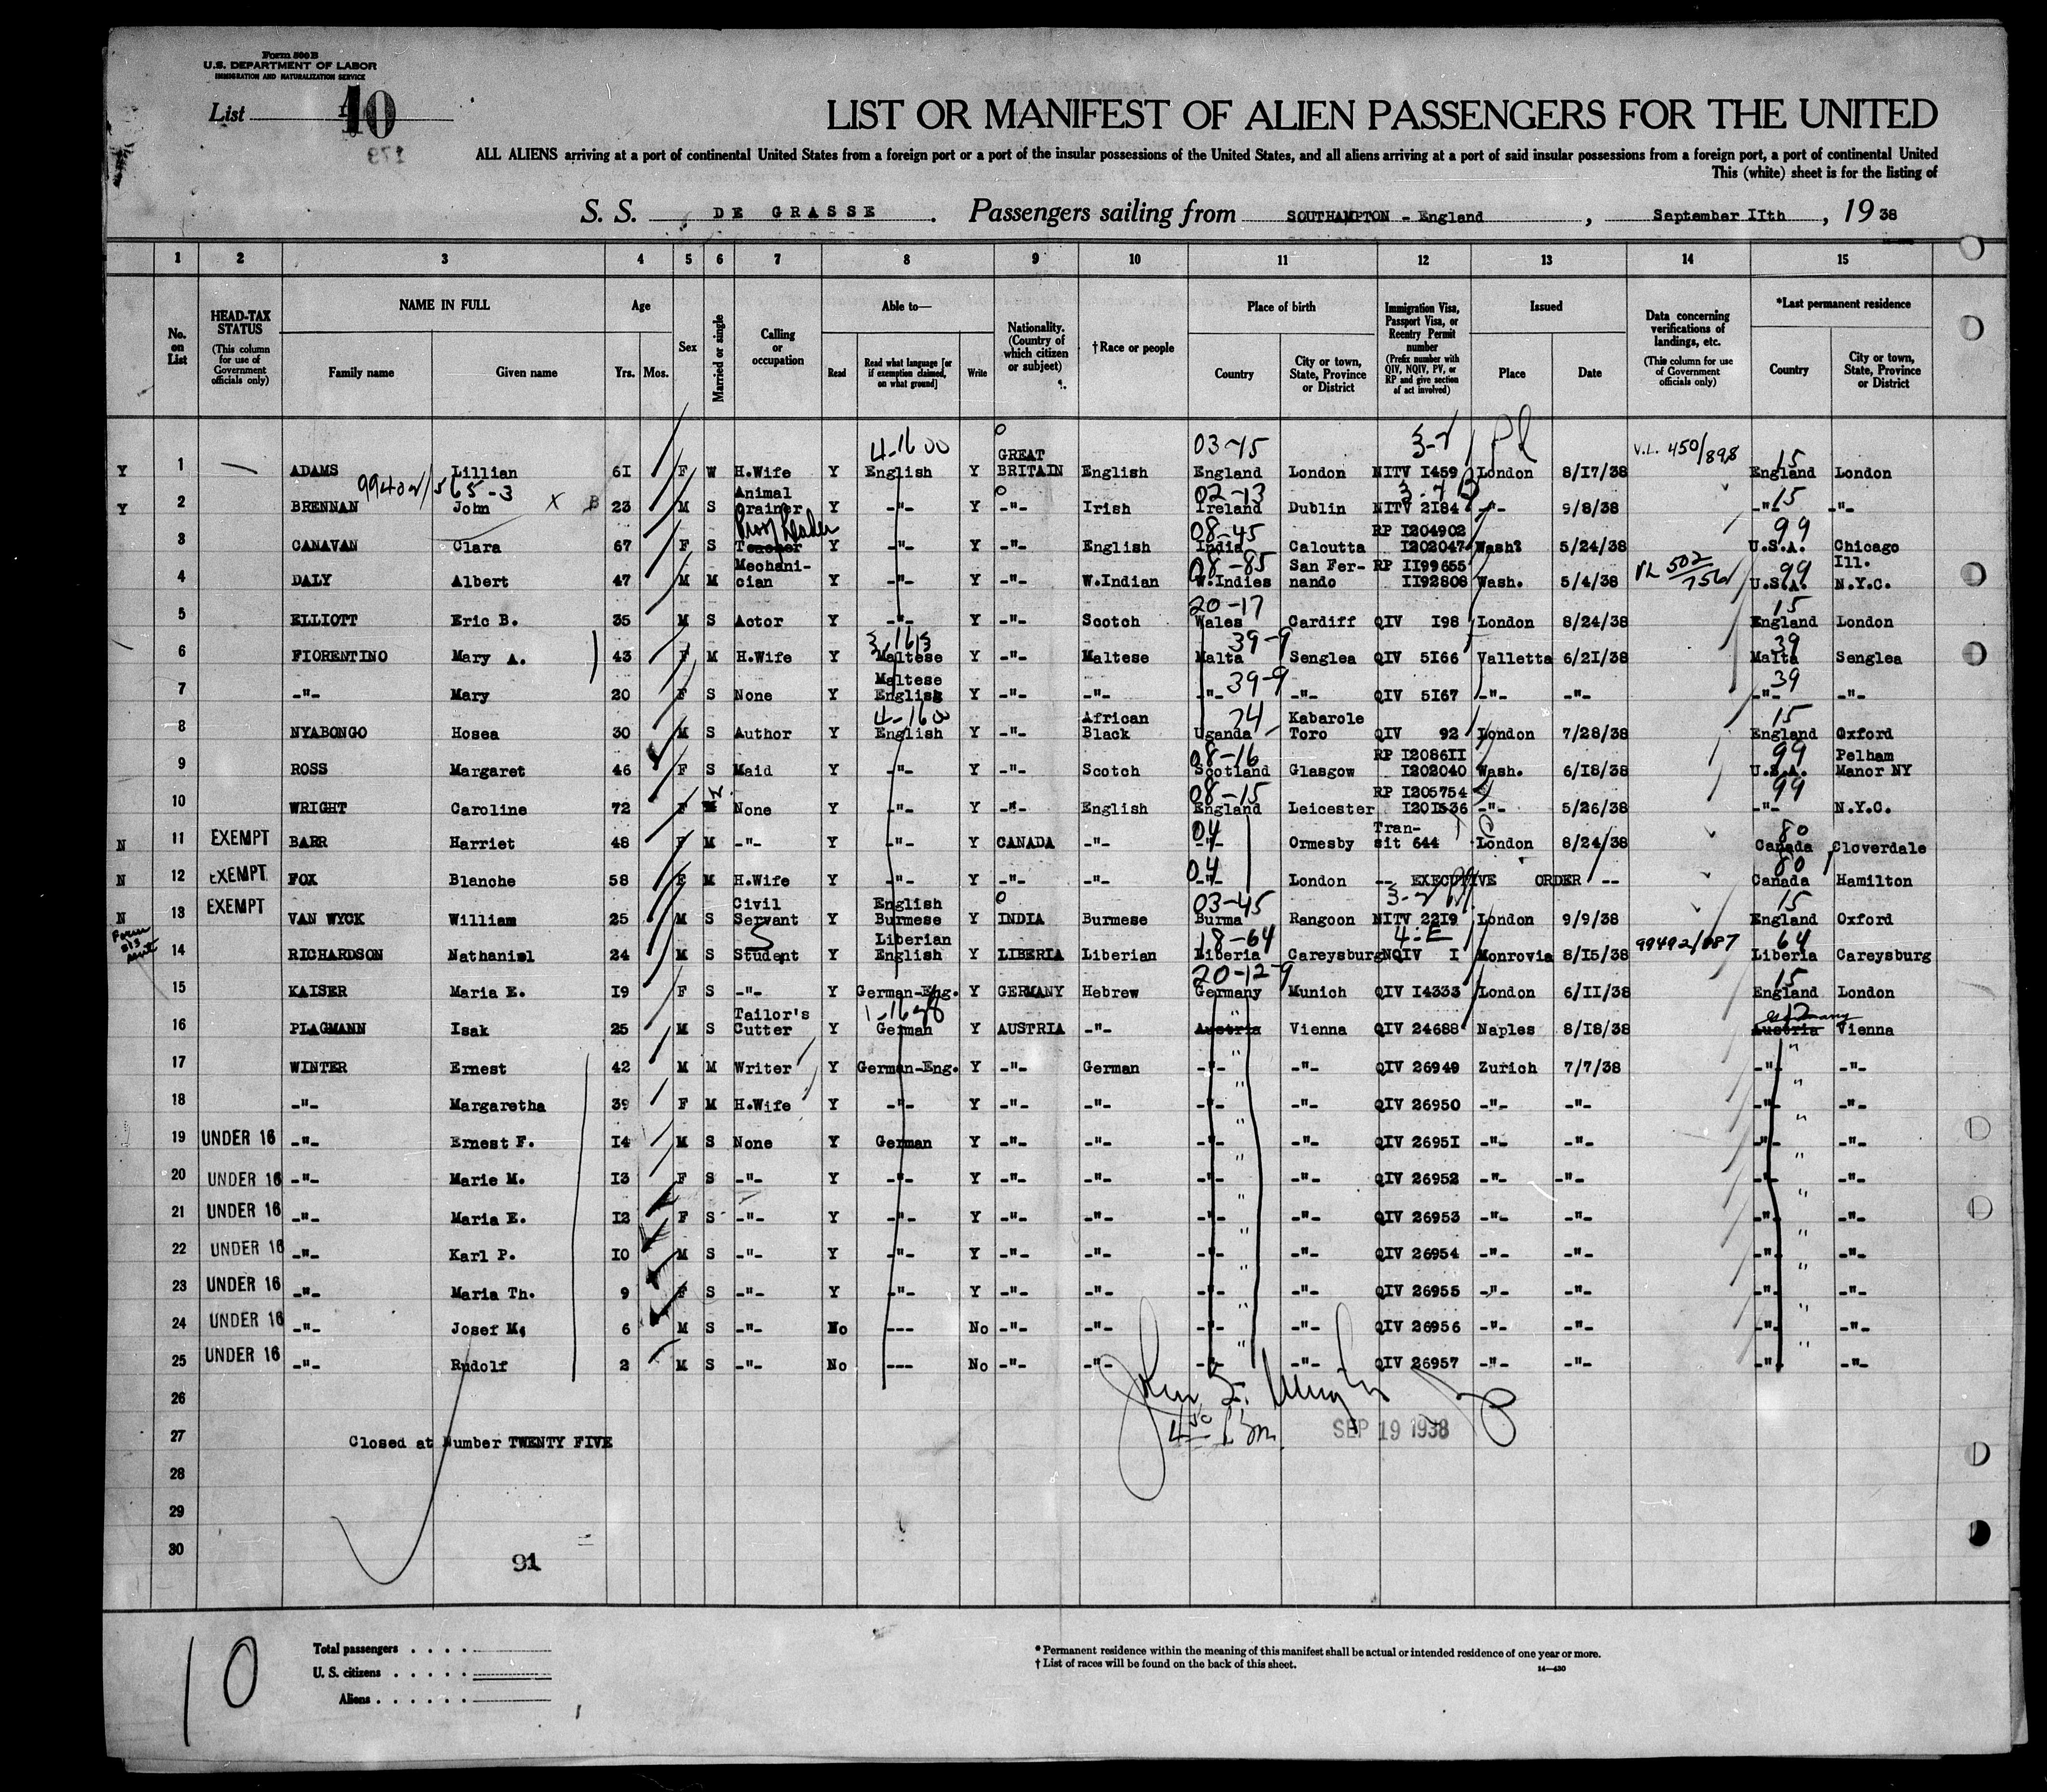 Form 500 B
U.S. DEPARTMENT OF LABOR
IMMIGRATION AND NATURALIZATION SERVICE
List 10
LIST OR MANIFEST OF ALIEN PASSENGERS FOR THE UNITED
ALL ALIENS arriving at a port of continental United States from a foreign port or a port of the insular possessions of the United States, and all aliens arriving at a port of said insular possessions from a foreign port, a port of continental United
This (white) sheet is for the listing of
S. S. DE GRASSE. Passengers sailing from SOUTHAMPTON - England, September IIth, 1938
1 2 3 4 5 6 7 8 9 10 11 12 13 14 15
No. on List
HEAD-TAX STATUS (This column for use of Government officials only)
NAME IN FULL
Family name Given name
Age
Yrs. Mos.
Sex
Married or single
Calling or occupation
Able to—
Read
Read what language [or if exemption claimed, on what ground]
Write
Nationality. (Country of which citizen or subject)
†Race or people
Place of birth
Country
City or town, State, Province or District
Immigration Visa, Passport Visa, or Reentry Permit number (Prefix number with QIV, NQIV, PV, or RP and give section of act involved)
Issued
Place Date
Data concerning verifications of landings, etc. (This column for use of Government officials only)
*Last permanent residence
Country
City or town, State, Province or District
4-1600 03-45 3-2 V.L. 450/898 15
Y 1 ADAMS Lillian 6I F W H.Wife Y English Y GREAT BRITAIN English England London NITV I459 London 8/I7/38 England London
99402/565-3 X B 02-13 15
Y 2 BRENNAN John 23 M S Animal Trainer Y -"- Y -"- Irish Ireland Dublin NITV 2I84 -"- 9/8/38 -"- -"-
Proof Reader 08-45 99
3 CANAVAN Clara 67 F S Teacher Y -"- Y -"- English India Calcutta RP I204902 I202047 Wash. 5/24/38 U.S.A. Chicago Ill.
08-85 VL 502/756 99
4 DALY Albert 47 M M Mechani-cian Y -"- Y -"- W.Indian W.Indies San Fer-nando RP II99655 II92808 Wash. 5/4/38 U.S.A. N.Y.C.
20-17 15
5 ELLIOTT Eric B. 35 M S Actor Y -"- Y -"- Scotch Wales Cardiff QIV I98 London 8/24/38 England London
39-9 39
6 FIORENTINO Mary A. 43 F M H.Wife Y Maltese Y -"- Maltese Malta Senglea QIV 5I66 Valletta 6/2I/38 Malta Senglea
39-9 39
7 -"- Mary 20 F S None Y Maltese English Y -"- -"- -"- -"- QIV 5I67 -"- -"- -"- -"-
4-1600 74 15
8 NYABONGO Hosea 30 M S Author Y English Y -"- African Black Uganda Kabarole Toro QIV 92 London 7/28/38 England Oxford
08-16 99
9 ROSS Margaret 46 F S Maid Y -"- Y -"- Scotch Scotland Glasgow RP I2086II I202040 Wash. 6/I8/38 U.S.A. Pelham Manor NY
08-15 99
10 WRIGHT Caroline 72 F M None Y -"- Y -"- English England Leicester RP I205754 I20I536 -"- 5/26/38 -"- N.Y.C.
04 80
N 11 EXEMPT BARR Harriet 48 F M -"- Y -"- Y CANADA -"- -"- Ormesby Tran-sit 644 London 8/24/38 Canada Cloverdale
04 80
N 12 EXEMPT FOX Blanche 58 F M H.Wife Y -"- Y -"- -"- -"- London -- EXECUTIVE ORDER -- Canada Hamilton
03-45 3-2 15
N 13 EXEMPT VAN WYCK William 25 M S Civil Servant Y English Burmese Y INDIA Burmese Burma Rangoon NITV 22I9 London 9/9/38 England Oxford
18-64 4-E 99492/687 64
14 RICHARDSON Nathaniel 24 M S Student Y Liberian English Y LIBERIA Liberian Liberia Careysburg NQIV I Monrovia 8/I5/38 Liberia Careysburg
20-12-9 15
15 KAISER Maria E. I9 F S -"- Y German-Eng. Y GERMANY Hebrew Germany Munich QIV I4333 London 6/II/38 England London
" 12 Germany
16 PLAGMANN Isak 25 M S Tailor's Cutter Y German Y AUSTRIA -"- Austria Vienna QIV 24688 Naples 8/I8/38 Austria Vienna
17 WINTER Ernest 42 M M Writer Y German-Eng. Y -"- German -"- -"- QIV 26949 Zurich 7/7/38 -"- -"-
18 -"- Margaretha 39 F M H.Wife Y -"- Y -"- -"- -"- -"- QIV 26950 -"- -"- -"- -"-
19 UNDER 16 -"- Ernest F. I4 M S None Y German Y -"- -"- -"- -"- QIV 2695I -"- -"- -"- -"-
20 UNDER 16 -"- Marie M. I3 F S -"- Y -"- Y -"- -"- -"- -"- QIV 26952 -"- -"- -"- -"-
21 UNDER 16 -"- Maria E. I2 F S -"- Y -"- Y -"- -"- -"- -"- QIV 26953 -"- -"- -"- -"-
22 UNDER 16 -"- Karl P. I0 M S -"- Y -"- Y -"- -"- -"- -"- QIV 26954 -"- -"- -"- -"-
23 UNDER 16 -"- Maria Th. 9 F S -"- Y -"- Y -"- -"- -"- -"- QIV 26955 -"- -"- -"- -"-
24 UNDER 16 -"- Josef M. 6 M S -"- No --- No -"- -"- -"- -"- QIV 26956 -"- -"- -"- -"-
25 UNDER 16 -"- Rudolf 2 M S -"- No --- No -"- -"- -"- -"- QIV 26957 -"- -"- -"- -"-
26
27 Closed at Number TWENTY FIVE SEP 19 1938
28
29
30
91
10
Total passengers . . . .
U. S. citizens . . . . .
Aliens . . . . . .
* Permanent residence within the meaning of this manifest shall be actual or intended residence of one year or more.
† List of races will be found on the back of this sheet.
14—430